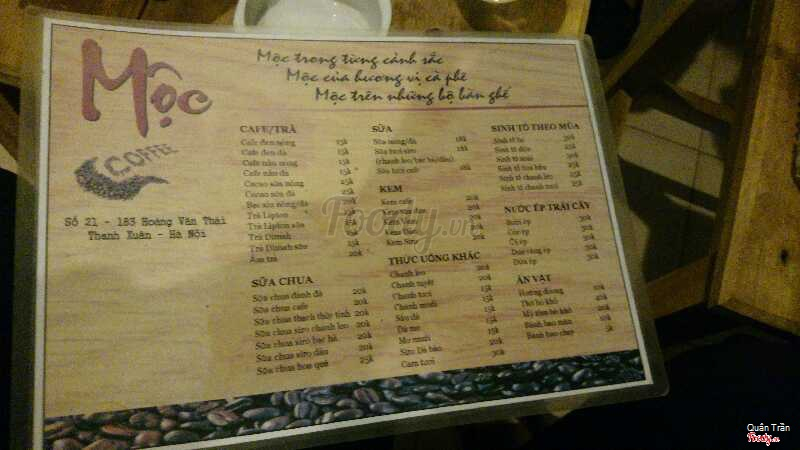 Mộc
COFFEE
Số 21 - 183 Hoàng Văn Thái
Thanh Xuân - Hà Nội
Mộc trong từng cảnh sắc
Mộc của hương vị cà phê
Mộc trên những bộ bàn ghế
CAFE/TRÀ
Cafe đen nóng 15k
Cafe đen đá 15k
Cafe nâu nóng
Cafe nâu đá
Cacao sữa nóng 25k
Cacao sữa đá 25k
Bạc sỉu nóng/đá
Trà Lipton
Trà Lipton sữa
Trà Dimah
Trà Dimah sữa
Ấm trà 20k
SỮA CHUA
Sữa chua đánh đá 20k
Sữa chua cafe 20k
Sữa chua thạch thủy tinh 20k
Sữa chua siro chanh leo 20k
Sữa chua siro bạc hà 20k
Sữa chua siro dâu 20k
Sữa chua hoa quả 25k
SỮA
Sữa nóng/đá 18k
Sữa tươi siro 18k
(chanh leo/bạc hà/dâu)
Sữa tươi cafe
KEM
Kem cafe 20k
Kem
Kem
Kem
Kem Siro
THỨC UỐNG KHÁC
Chanh leo 20k
Chanh tuyết 20k
Chanh tươi 15k
Chanh muối 15k
Sấu đá 15k
Dá me
Mơ muối 15k
Siro Đá bào 20k
Cam tươi 30k
SINH TỐ THEO MÙA
Sinh tố bơ 30k
Sinh tố dứa 25k
Sinh tố xoài 30k
Sinh tố dưa hấu 25k
Sinh tố chanh leo 25k
Sinh tố chanh tươi 25k
NƯỚC ÉP TRÁI CÂY
Bưởi ép 30k
Cóc ép 30k
Ổi ép 30k
Dưa vàng ép 30k
Dứa ép 30k
ĂN VẶT
Hướng dương 10k
Thịt bò khô 40k
Mỳ tôm bò khô 20k
Bánh bao mặn
Bánh bao chay 5k
Foody.vn
Quân Trần
Foody.vn